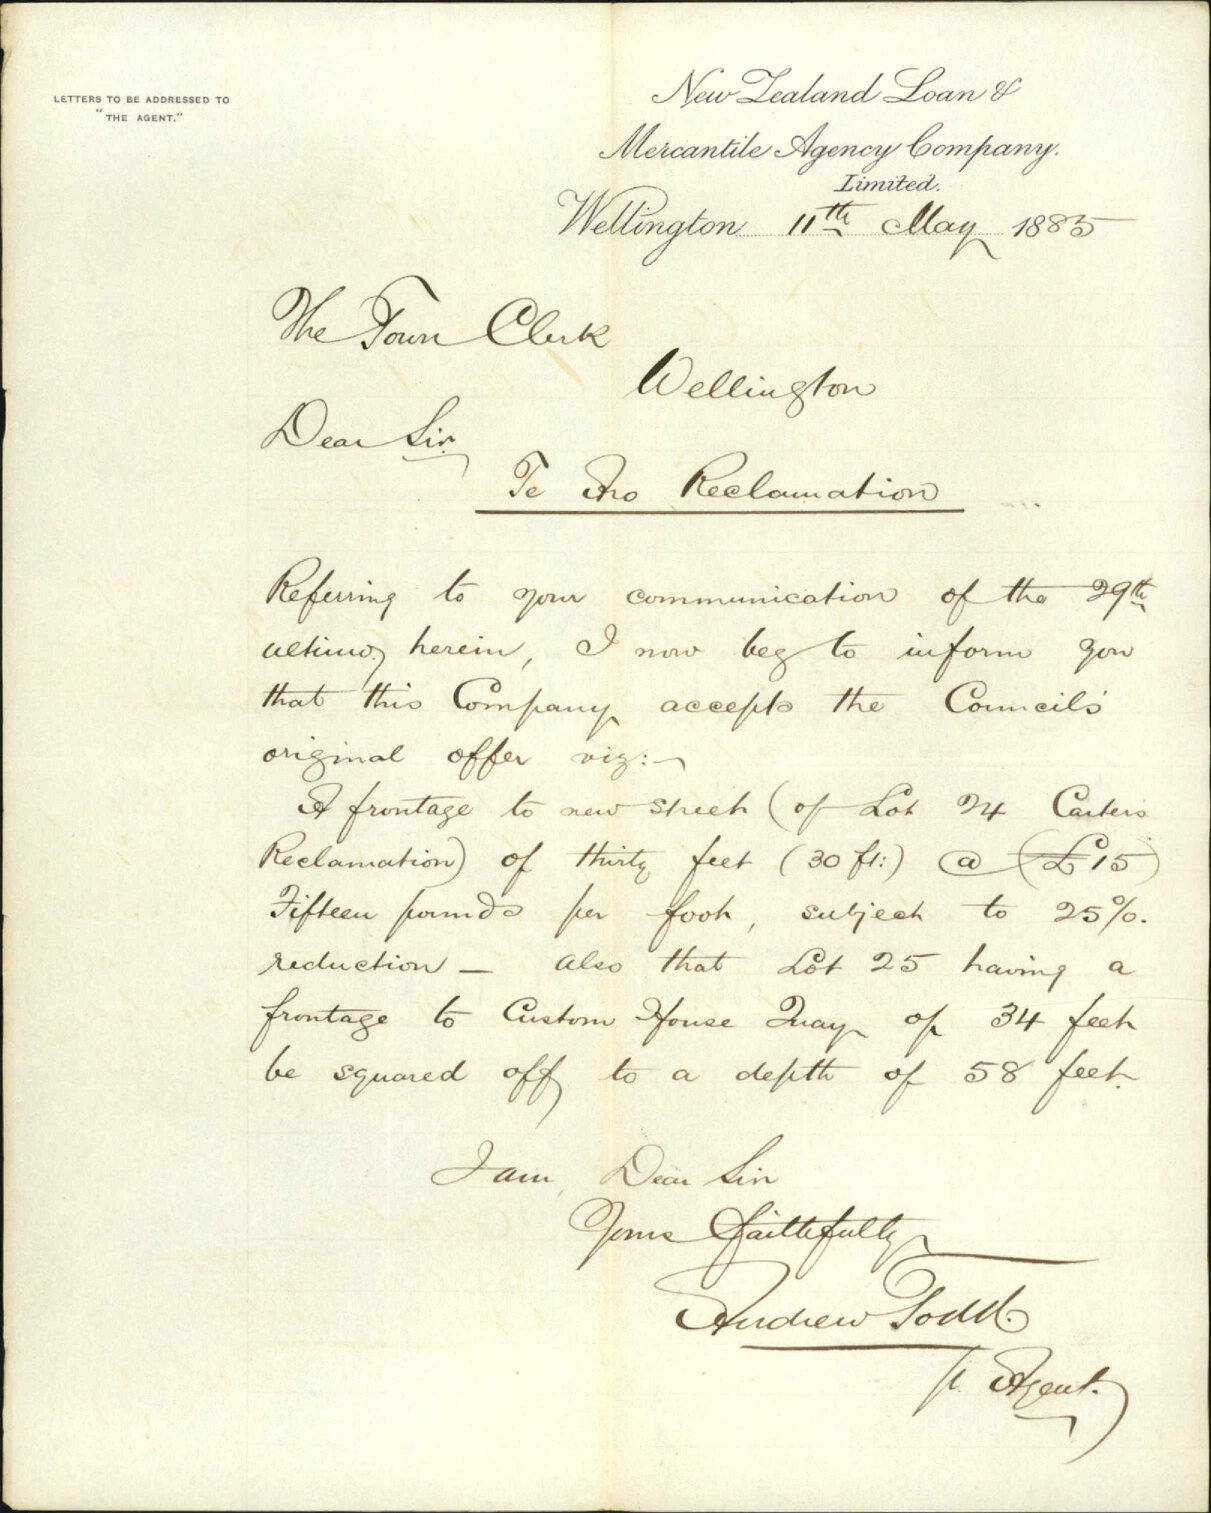 LETTERS TO BE ADDRESSED TO
"THE AGENT."
New Zealand Loan &
Mercantile Agency Company.
Limited.
Wellington 11th May 1885
The Town Clerk
Wellington
Dear Sir,
Te Aro Reclamation
Referring to your communication of the 29th
ultimo, herein, I now beg to inform you
that this Company accepts the Council's
original offer viz:—
A frontage to new street (of Lot 24 Carters
Reclamation) of thirty feet (30 ft:) @ (£15)
Fifteen pounds per foot, subject to 25%.
reduction — also that Lot 25 having a
frontage to Custom House Quay of 34 feet
be squared off to a depth of 58 feet.
I am, Dear Sir
Yours faithfully
Andrew Todd.
p. Agent.